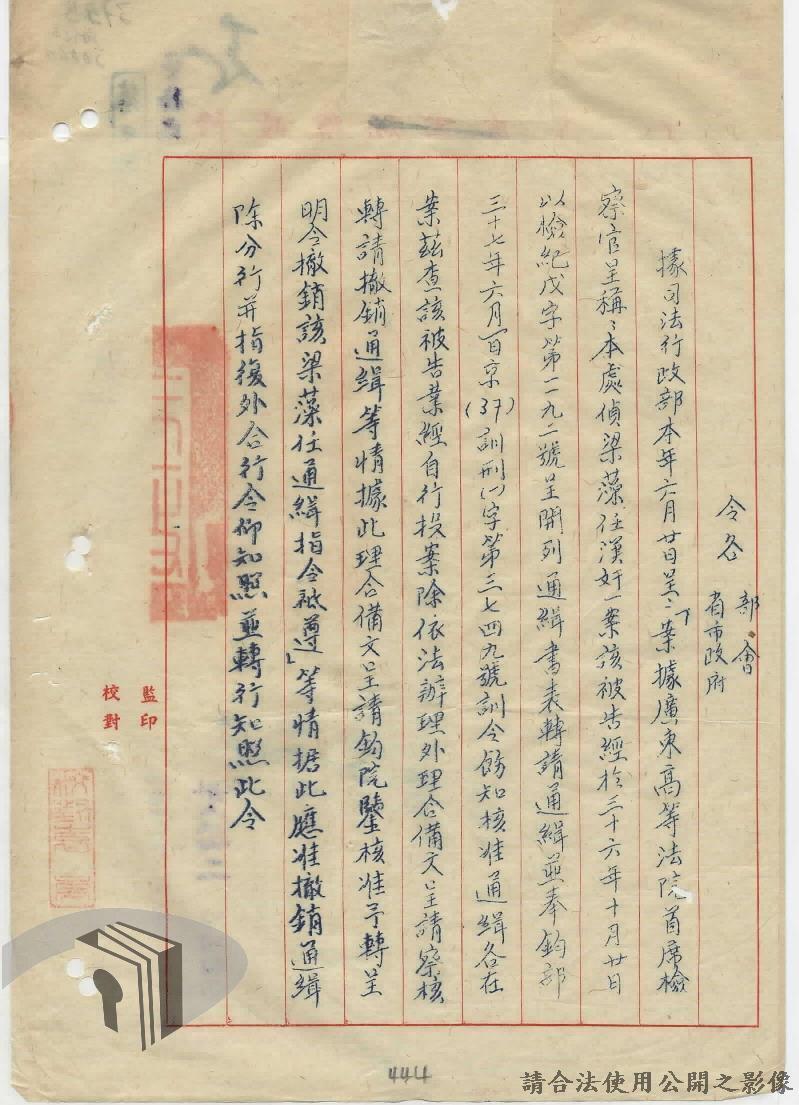 令各
部會
省市政府
據司法行政部本年六月廿日呈:「案據廣東高等法院首席檢
察官呈稱:本處偵梁藻任漢奸一案該被告經於三十六年十月廿日
以檢紀戊字第一九二號呈開列通緝書表轉請通緝並奉鈞部
三十七年六月一日京(37)訓刑(一)字第三七四九號訓令飭知核准通緝各在
案茲查該被告業經自行投案除依法辦理外理合備文呈請察核
轉請撤銷通緝等情據此理合備文呈請鈞院鑒核准予轉呈
明令撤銷該梁藻任通緝指令祗遵」等情据此應准撤銷通緝
除分行并指復外合行令仰知照並轉行知照此令
監印
校對
444
請合法使用公開之影像